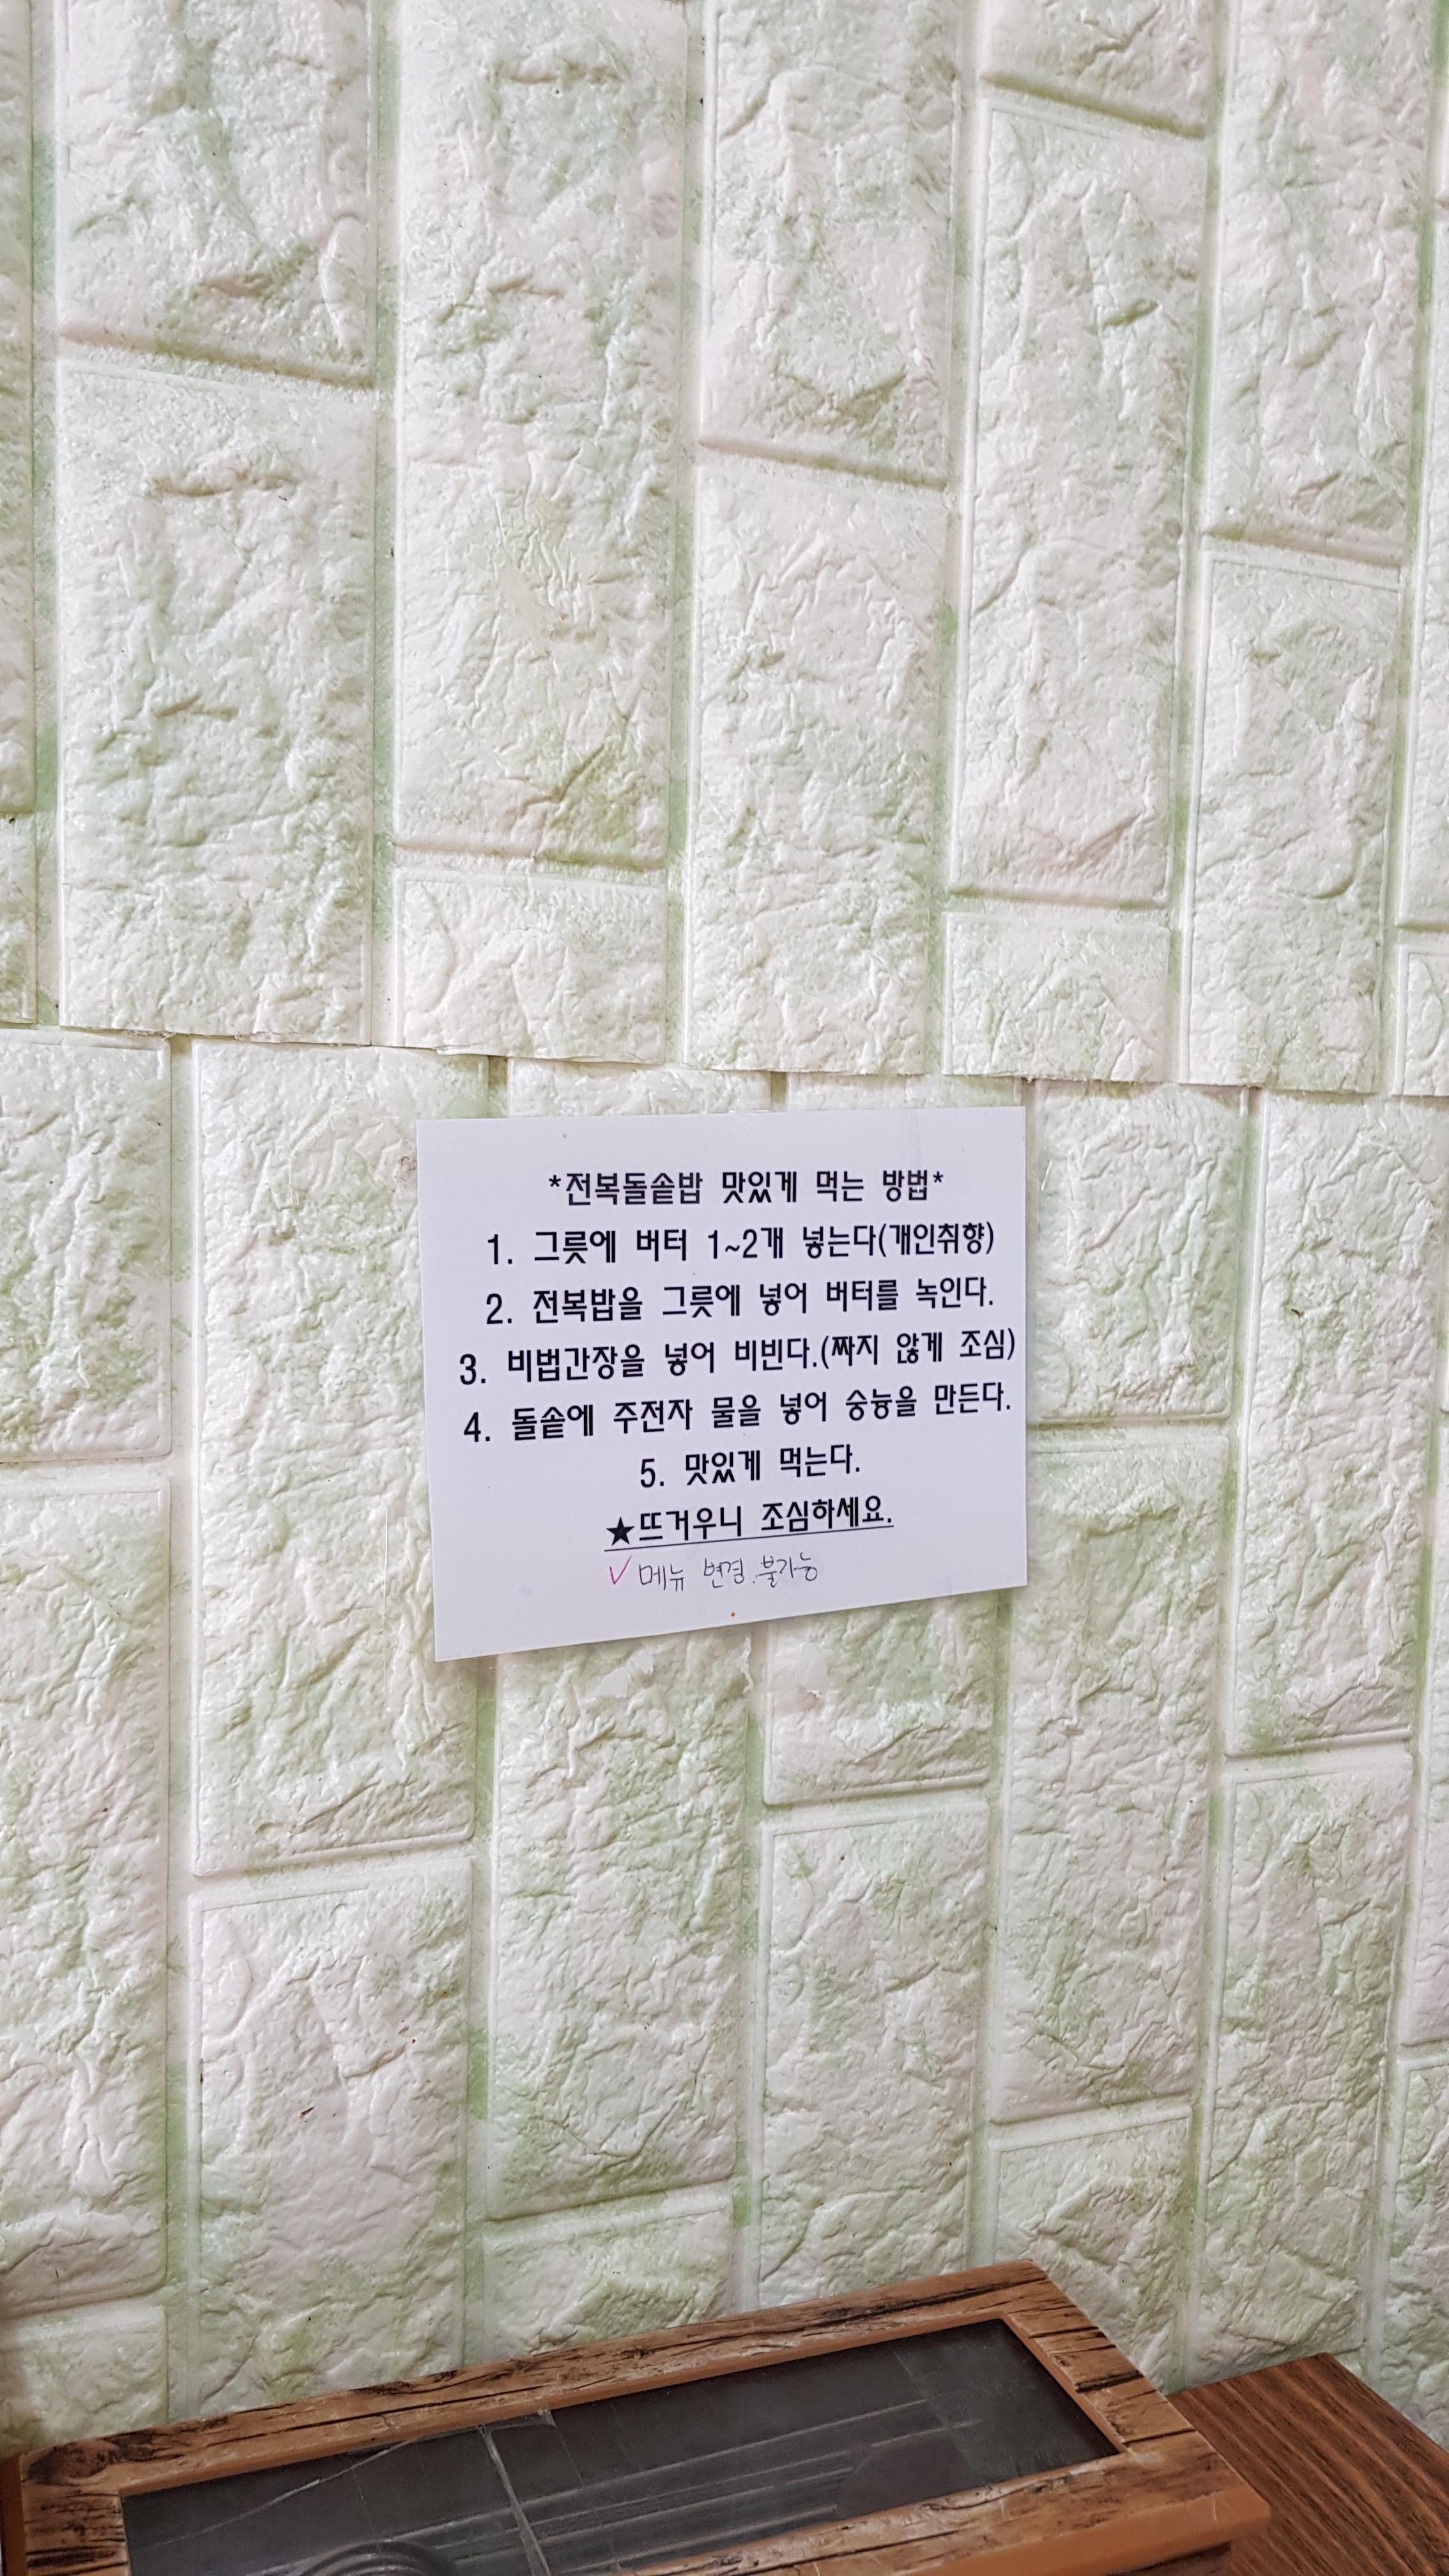 *전복돌솥밥 맛있게 먹는 방법*
1. 그릇에 버터 1~2개 넣는다(개인취향)
2. 전복밥을 그릇에 넣어 버터를 녹인다.
3. 비법간장을 넣어 비빈다.(짜지 않게 조심)
4. 돌솥에 주전자 물을 넣어 숭늉을 만든다.
5. 맛있게 먹는다.
★뜨거우니 조심하세요.
✓메뉴 변경.불가능